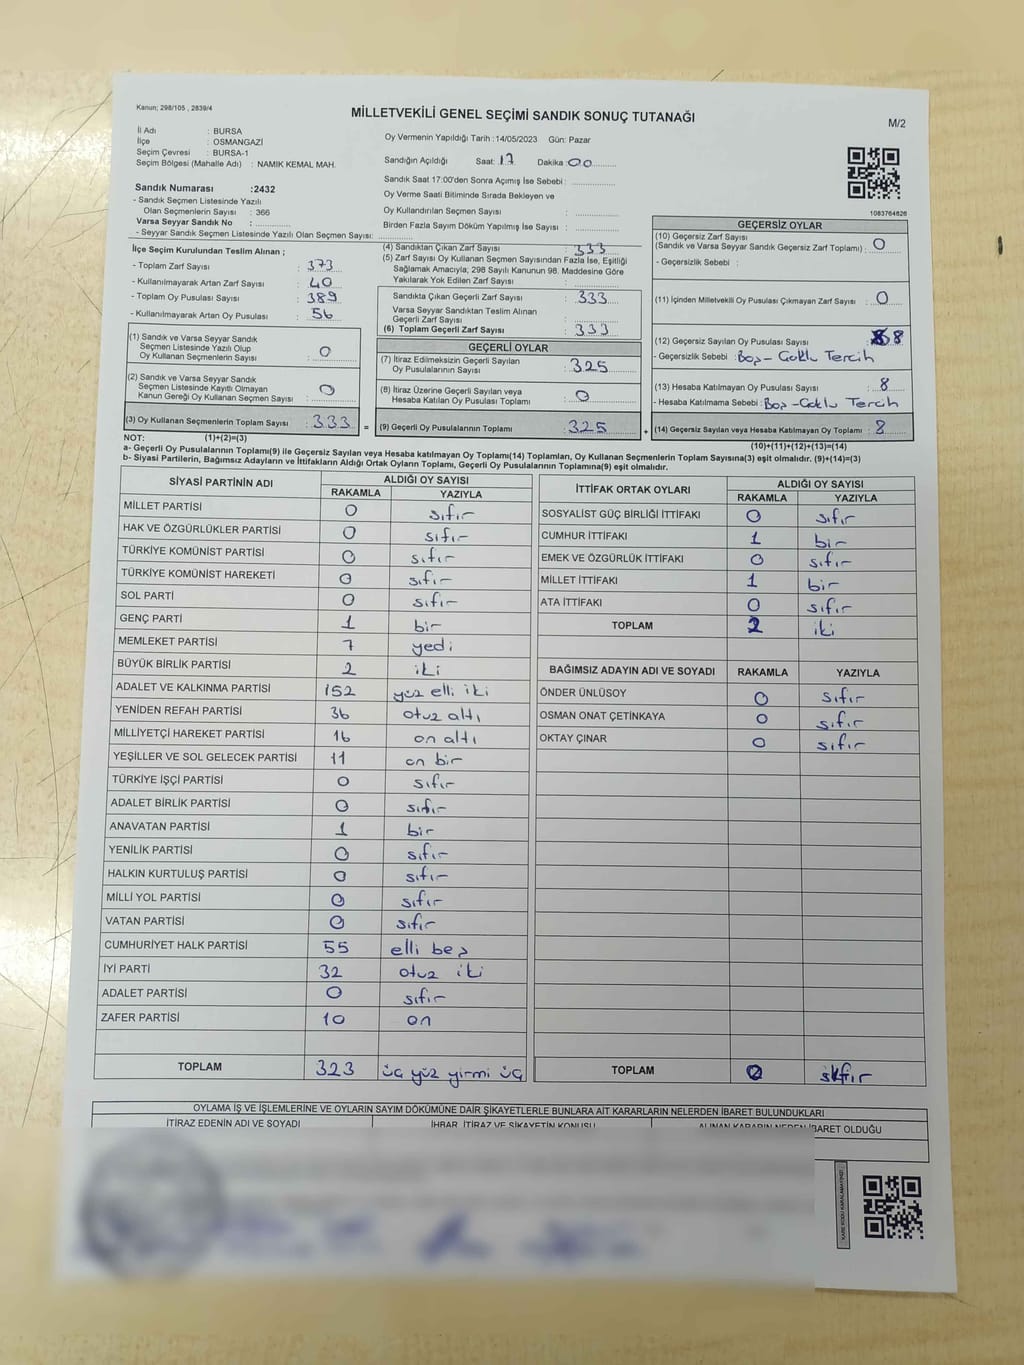 Kanun; 298/105 , 2839/4
MİLLETVEKİLİ GENEL SEÇİMİ SANDIK SONUÇ TUTANAĞI
M/2
İl Adı : BURSA
İlçe : OSMANGAZİ
Seçim Çevresi : BURSA-1
Seçim Bölgesi (Mahalle Adı) : NAMIK KEMAL MAH.
Sandık Numarası :2432
- Sandık Seçmen Listesinde Yazılı
Olan Seçmenlerin Sayısı : 366
Varsa Seyyar Sandık No :
- Seyyar Sandık Seçmen Listesinde Yazılı Olan Seçmen Sayısı:
Oy Vermenin Yapıldığı Tarih :14/05/2023 Gün: Pazar
Sandığın Açıldığı Saat: 17 Dakika: 00
Sandık Saat 17:00'den Sonra Açımış İse Sebebi :
Oy Verme Saati Bitiminde Sırada Bekleyen ve
Oy Kullandırılan Seçmen Sayısı :
Birden Fazla Sayım Döküm Yapılmış İse Sayısı :
1083764626
İlçe Seçim Kurulundan Teslim Alınan ;
- Toplam Zarf Sayısı : 373
- Kullanılmayarak Artan Zarf Sayısı : 40
- Toplam Oy Pusulası Sayısı : 389
- Kullanılmayarak Artan Oy Pusulası : 56
(1) Sandık ve Varsa Seyyar Sandık
Seçmen Listesinde Yazılı Olup
Oy Kullanan Seçmenlerin Sayısı : 0
(2) Sandık ve Varsa Seyyar Sandık
Seçmen Listesinde Kayıtlı Olmayan
Kanun Gereği Oy Kullanan Seçmen Sayısı : 0
(3) Oy Kullanan Seçmenlerin Toplam Sayısı : 333 =
(4) Sandıktan Çıkan Zarf Sayısı : 333
(5) Zarf Sayısı Oy Kullanan Seçmen Sayısından Fazla İse, Eşitliği
Sağlamak Amacıyla; 298 Sayılı Kanunun 98. Maddesine Göre
Yakılarak Yok Edilen Zarf Sayısı :
Sandıkta Çıkan Geçerli Zarf Sayısı : 333
Varsa Seyyar Sandıktan Teslim Alınan
Geçerli Zarf Sayısı :
(6) Toplam Geçerli Zarf Sayısı : 333
GEÇERLİ OYLAR
(7) İtiraz Edilmeksizin Geçerli Sayılan
Oy Pusulalarının Sayısı : 325
(8) İtiraz Üzerine Geçerli Sayılan veya
Hesaba Katılan Oy Pusulası Toplamı : 0
(9) Geçerli Oy Pusulalarının Toplamı : 325 +
GEÇERSİZ OYLAR
(10) Geçersiz Zarf Sayısı
(Sandık ve Varsa Seyyar Sandık Geçersiz Zarf Toplamı) : 0
- Geçersizlik Sebebi :
(11) İçinden Milletvekili Oy Pusulası Çıkmayan Zarf Sayısı : 0
(12) Geçersiz Sayılan Oy Pusulası Sayısı : 8
- Geçersizlik Sebebi : Boş - Çoklu Tercih
(13) Hesaba Katılmayan Oy Pusulası Sayısı : 8
- Hesaba Katılmama Sebebi : Boş - Çoklu Tercih
(14) Geçersiz Sayılan veya Hesaba Katılmayan Oy Toplamı : 8
NOT: (1)+(2)=(3)
(10)+(11)+(12)+(13)=(14)
a- Geçerli Oy Pusulalarının Toplamı(9) ile Geçersiz Sayılan veya Hesaba katılmayan Oy Toplamı(14) Toplamları, Oy Kullanan Seçmenlerin Toplam Sayısına(3) eşit olmalıdır. (9)+(14)=(3)
b- Siyasi Partilerin, Bağımsız Adayların ve İttifakların Aldığı Ortak Oyların Toplamı, Geçerli Oy Pusulalarının Toplamına(9) eşit olmalıdır.
SİYASİ PARTİNİN ADI ALDIĞI OY SAYISI
RAKAMLA YAZIYLA
MİLLET PARTİSİ 0 sıfır
HAK VE ÖZGÜRLÜKLER PARTİSİ 0 sıfır
TÜRKİYE KOMÜNİST PARTİSİ 0 sıfır
TÜRKİYE KOMÜNİST HAREKETİ 0 sıfır
SOL PARTİ 0 sıfır
GENÇ PARTİ 1 bir
MEMLEKET PARTİSİ 7 yedi
BÜYÜK BİRLİK PARTİSİ 2 iki
ADALET VE KALKINMA PARTİSİ 152 yüz elli iki
YENİDEN REFAH PARTİSİ 36 otuz altı
MİLLİYETÇİ HAREKET PARTİSİ 16 on altı
YEŞİLLER VE SOL GELECEK PARTİSİ 11 on bir
TÜRKİYE İŞÇİ PARTİSİ 0 sıfır
ADALET BİRLİK PARTİSİ 0 sıfır
ANAVATAN PARTİSİ 1 bir
YENİLİK PARTİSİ 0 sıfır
HALKIN KURTULUŞ PARTİSİ 0 sıfır
MİLLİ YOL PARTİSİ 0 sıfır
VATAN PARTİSİ 0 sıfır
CUMHURİYET HALK PARTİSİ 55 elli beş
İYİ PARTİ 32 otuz iki
ADALET PARTİSİ 0 sıfır
ZAFER PARTİSİ 10 on
TOPLAM 323 üç yüz yirmi üç
İTTİFAK ORTAK OYLARI ALDIĞI OY SAYISI
RAKAMLA YAZIYLA
SOSYALİST GÜÇ BİRLİĞİ İTTİFAKI 0 sıfır
CUMHUR İTTİFAKI 1 bir
EMEK VE ÖZGÜRLÜK İTTİFAKI 0 sıfır
MİLLET İTTİFAKI 1 bir
ATA İTTİFAKI 0 sıfır
TOPLAM 2 iki
BAĞIMSIZ ADAYIN ADI VE SOYADI RAKAMLA YAZIYLA
ÖNDER ÜNLÜSOY 0 sıfır
OSMAN ONAT ÇETİNKAYA 0 sıfır
OKTAY ÇINAR 0 sıfır
TOPLAM 0 sıfır
OYLAMA İŞ VE İŞLEMLERİNE VE OYLARIN SAYIM DÖKÜMÜNE DAİR ŞİKAYETLERLE BUNLARA AİT KARARLARIN NELERDEN İBARET BULUNDUKLARI
İTİRAZ EDENİN ADI VE SOYADI İHBAR, İTİRAZ VE ŞİKAYETİN KONUSU ALINAN KARARIN NEDEN İBARET OLDUĞU